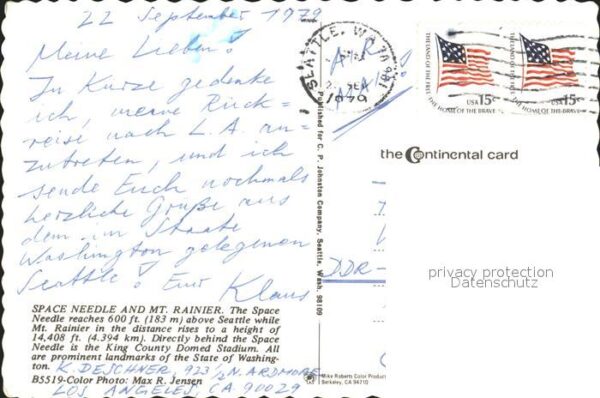 22 September 1979
Meine Lieben!
In Kürze gedenke
ich, meine Rück-
reise nach L.A. an-
zutreten, und ich
sende Euch nochmals
herzliche Grüße aus
dem im Staate
Washington gelegenen
Seattle! Euer Klaus
SPACE NEEDLE AND MT. RAINIER. The Space
Needle reaches 600 ft. (183 m) above Seattle while
Mt. Rainier in the distance rises to a height of
14,408 ft. (4.394 km). Directly behind the Space
Needle is the King County Domed Stadium. All
are prominent landmarks of the State of Washing-
ton.
B5519-Color Photo: Max R. Jensen
K. DESCHNER, 923 1/2 N. ARDMORE
LOS ANGELES, CA 90029
Published for C. P. Johnston Company, Seattle, Wash. 98109
SEATTLE, WA 981
1979
THE LAND OF THE FREE
THE HOME OF THE BRAVE
USA 15c
THE LAND OF THE FREE
THE HOME OF THE BRAVE
USA 15c
the Continental card
DDR-
privacy protection
Datenschutz
Mike Roberts Color Product
Berkeley, CA 94710